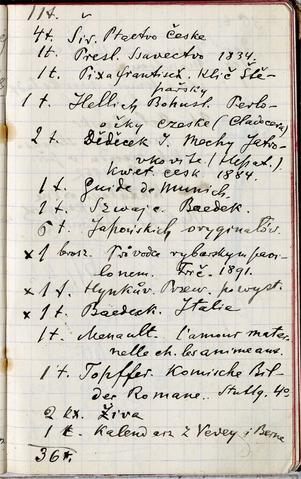 11 t. Š
4 t. Šír. Ptactvo České
1 t. Presl. Ssavectvo 1834.
1 t. Pixa František. Klíč Ště-
parsky
1 t. Hellich Bohusl. Perlo-
očky czeske (Cladocera)
2 t. Děděček J. Mechy Jatro-
vkovité (Hepat.)
Květ. česk 1884.
1 t. Guide de Munich.
1 t. Szwajc. Baedek.
6 t. Japońskich oryginałów.
x 1 brosz. Průvodce rybarskym pavi-
lonem. Frič. 1891.
x 1 t. Hynkův. Przew. po wyst.
x 1 t. Baedeck. Italie
1 t. Menault. L'amour mater-
nelle ch. les animeaux.
1 t. Topffer. Komische Bil-
der Romane. Stuttg. 4o
2 kx. Živa
1 t. Kalendarz z Vevey i Berna
36 t.